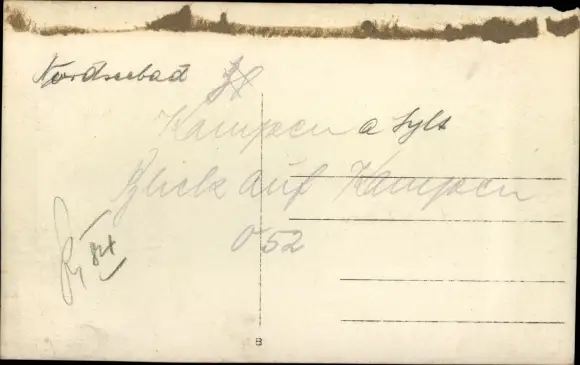 Nordseebad
Kampen a Sylt
Blick auf Kampen
052
B